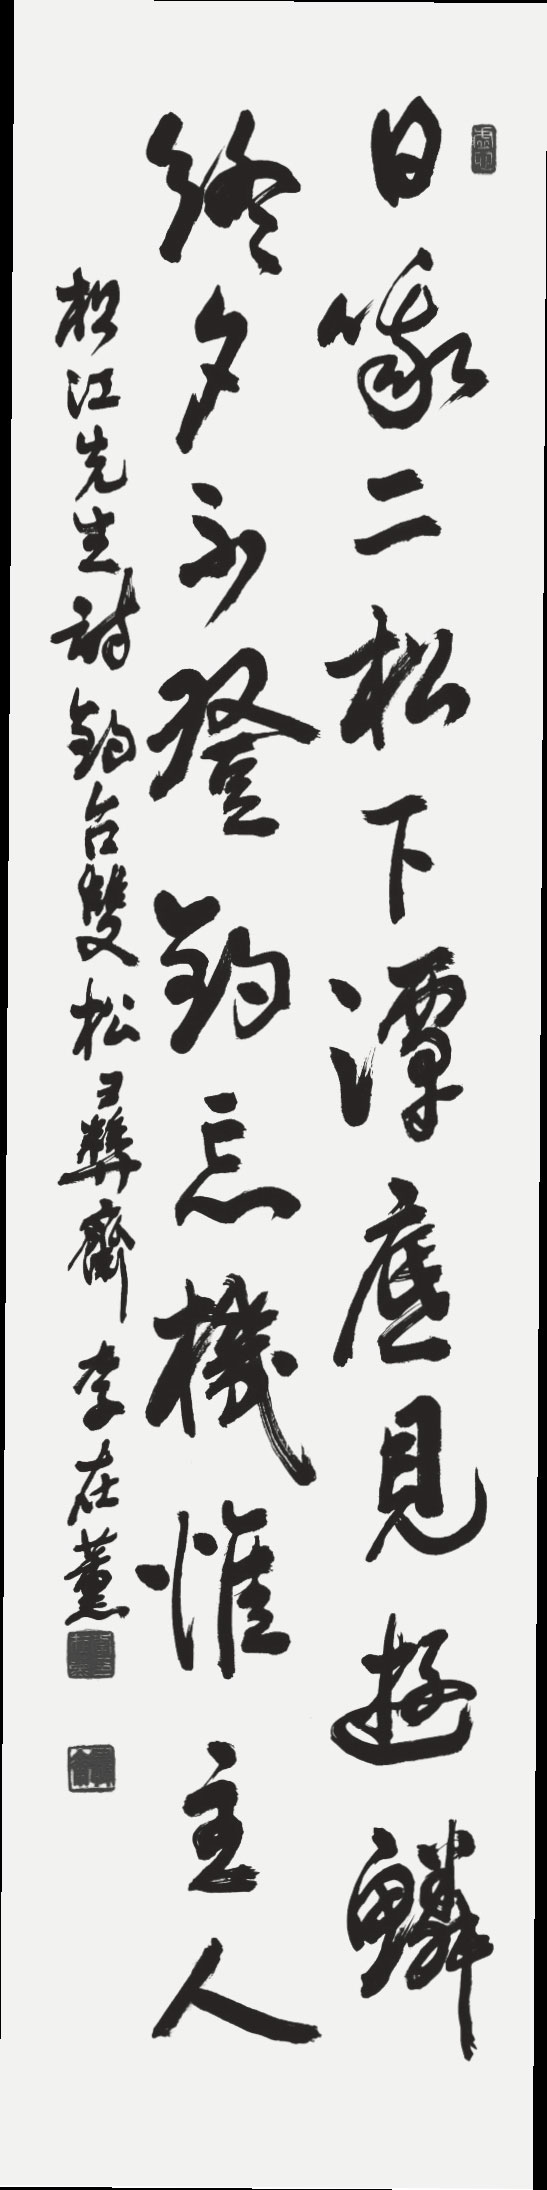 日哦二松下潭底見遊鱗
終夕不登釣忘機惟主人
松江先生詩 釣台雙松 彛齋 李在薰